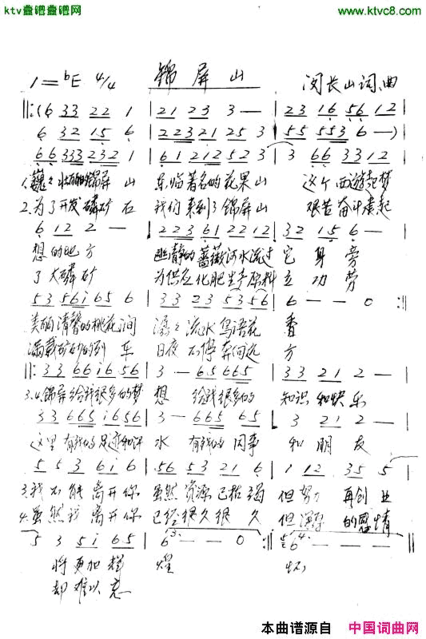 ktv歌谱歌谱网
www.ktvc8.com
锦屏山
1=bE 4/4 闵长山词.曲
‖:(6 33 22 1 | 21 23 3 — | 23 16 56 12 |
6 32 15 6 | 2223 21 25 3 | 55 553 6 —) |
66 333 232 1 | 61 212 52 3 | 3 66 33 12 |
1. 巍巍 锦屏 山 东临著名的花果山 这个 西游起梦
2. 为了开发磷矿 石 我们来到了锦屏山 艰苦奋斗
6 12 2 — | 223 61 22 12 | 32 15 6 — |
想的地方 幽静的蔷薇河水流过 它 身 旁
了大磷矿 为供应化肥生产原料 立 功 劳
53 56i i65 6 | 33 23 53 56 | 6 — — 0 :‖
美丽清馨的桃花涧 潺潺流水鸟语花 香
满载矿砂的 车 日夜不停奔向远 方
‖: 33 66 i6 56 | 3 — 65 665 | 33 21 2 — |
3.4. 锦屏给我很多的梦 想 给我很多的 知识和快乐
33 665 i6 56 | 3 — 665 65 | 3 21 2 — |
这里有我的足迹和汗 水 有我的同事 和 朋 友
5 5 3 6 i 6 | 56 53 21 6 | 1 12 35 5 |
3. 我不能离开你 虽然资源已枯竭 但努力 再创业
4. 虽然我 离开你 已经很久很 久 但 的恩情
5 3 5 i 65 | 6 — — 0 :‖ 6 — — — ‖
将更加辉 煌
却难以忘 怀
本曲谱源自 中国词曲网